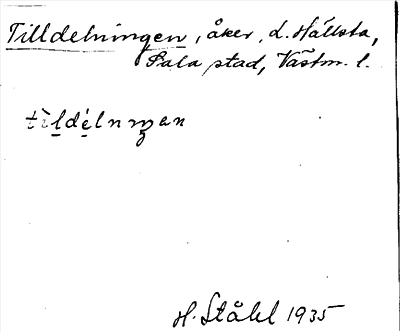 Tilldelningen, åker, L. Hällsta,
Sala stad, Västm. l.
tìldélnıŋen
H. Ståhl 1935